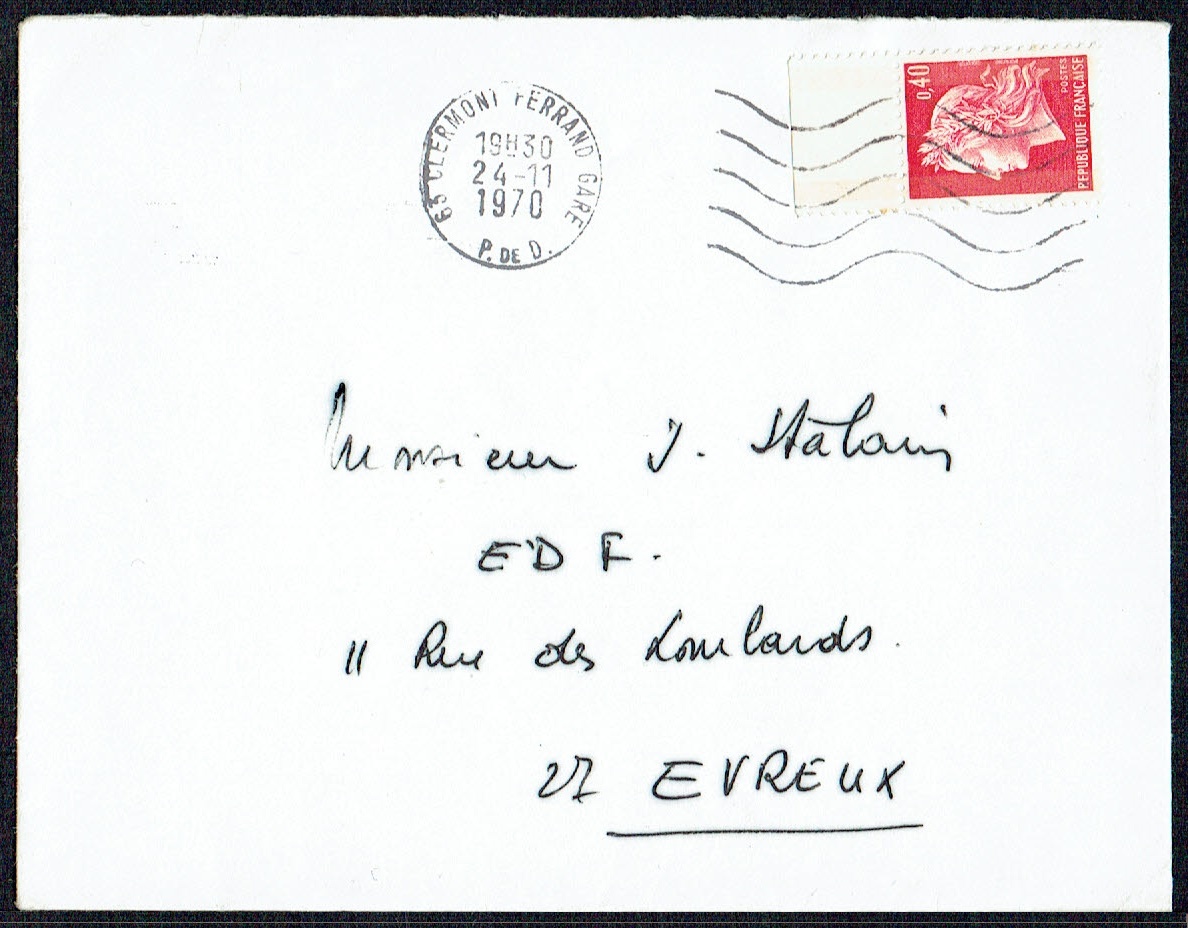 63 CLERMONT FERRAND GARE
19H30
24-11
1970
P. DE D.
0,40
POSTES
REPUBLIQUE FRANÇAISE
Monsieur J.
EDF.
11 Rue des Lombards.
27 EVREUX